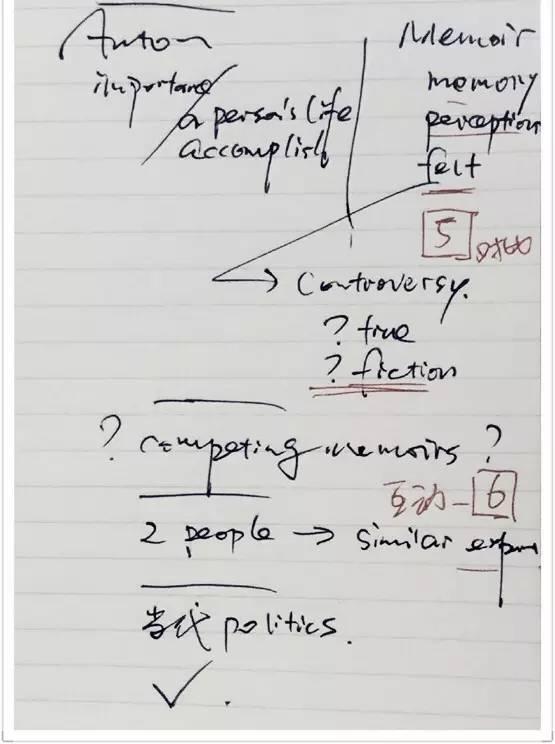 Auton
importane
a person's life
accomplish
Memoir
memory
perception
felt
5 对比
→ Controversy.
? true
? fiction
? competing memoirs ?
互动 - 6
2 people → similar
当代 politics.
✓.